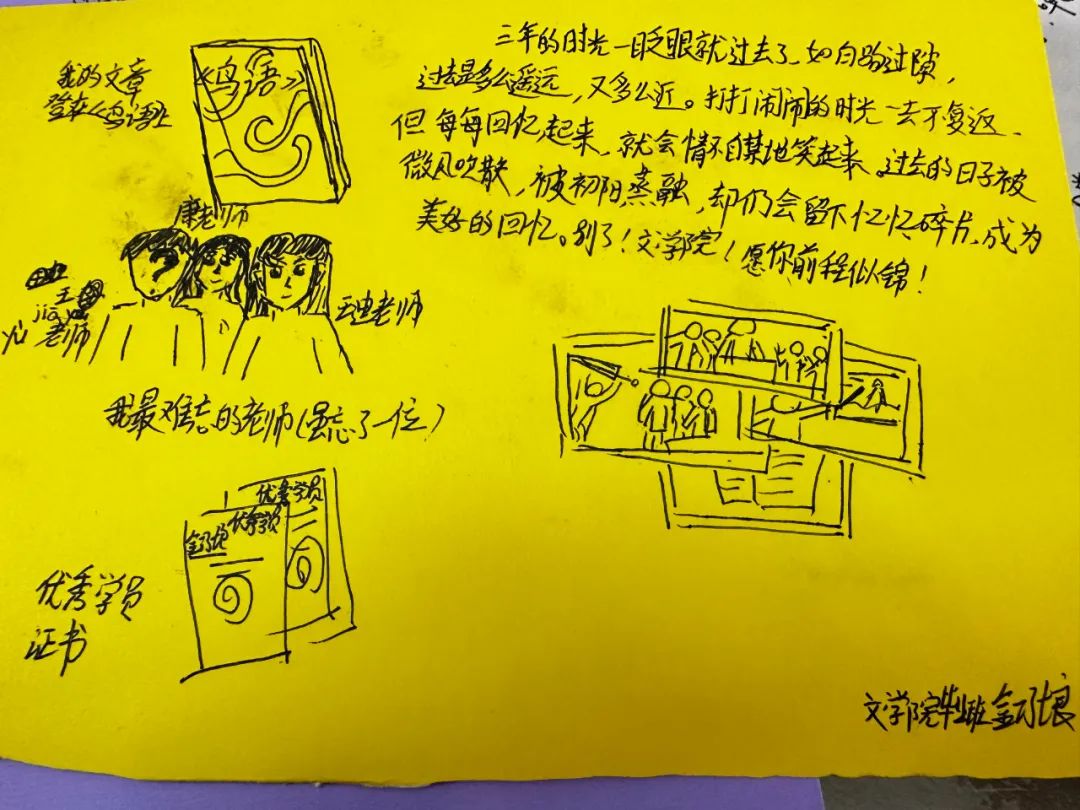 我的文章
登在《鸟语》上
《鸟语》
康老师
王
jia
yu 老师
老师
我最难忘的老师(虽忘了一位)
优秀学员
优秀学员
优秀学员
证书
三年的时光一眨眼就过去了,如白驹过隙,
过去是多么遥远,又多么近。打打闹闹的时光一去不复返、
但每每回忆起来,就会情不自禁地笑起来。过去的日子被
微风吹散,被初阳蒸融,却仍会留下忆忆碎片,成为
美好的回忆。别了!文学院!愿你前程似锦!
文学院毕业班